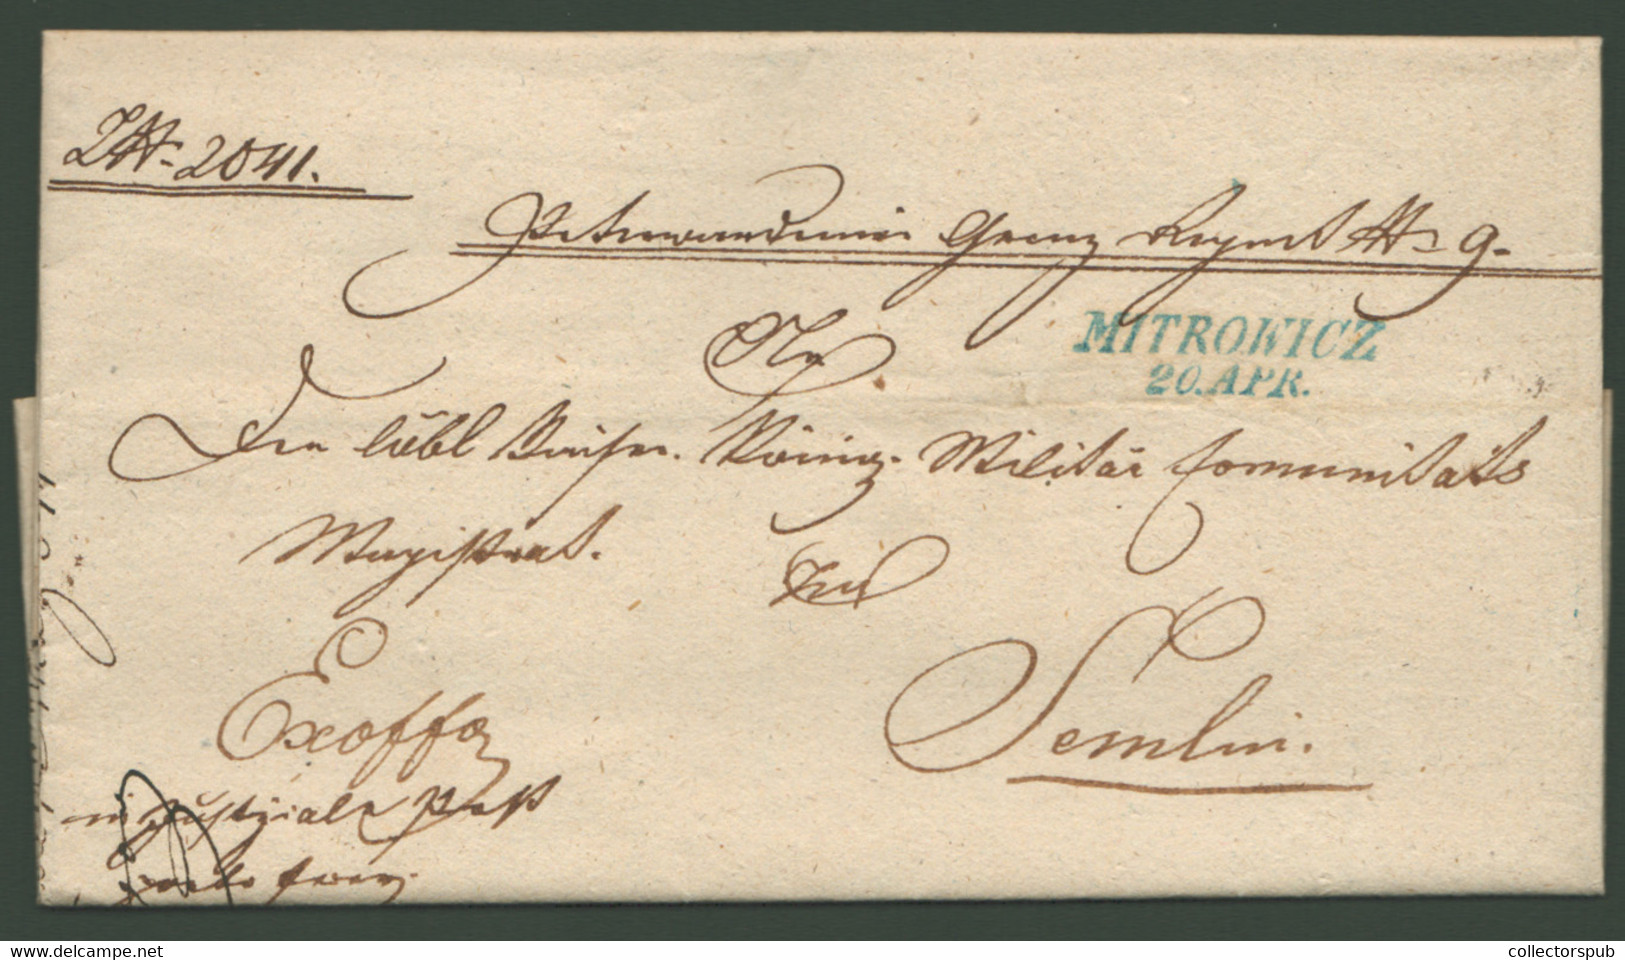 No. 2041.
Peterwardeiner Grenz Regmt No 9.
MITROWICZ
20.APR.
An
Den löbl Kaiser. König. Militär Comunitats
Magistrat.
Zu
Semlin.
Exoffo
in Justiziale
porto frey.
delcampe.net
collectorspub